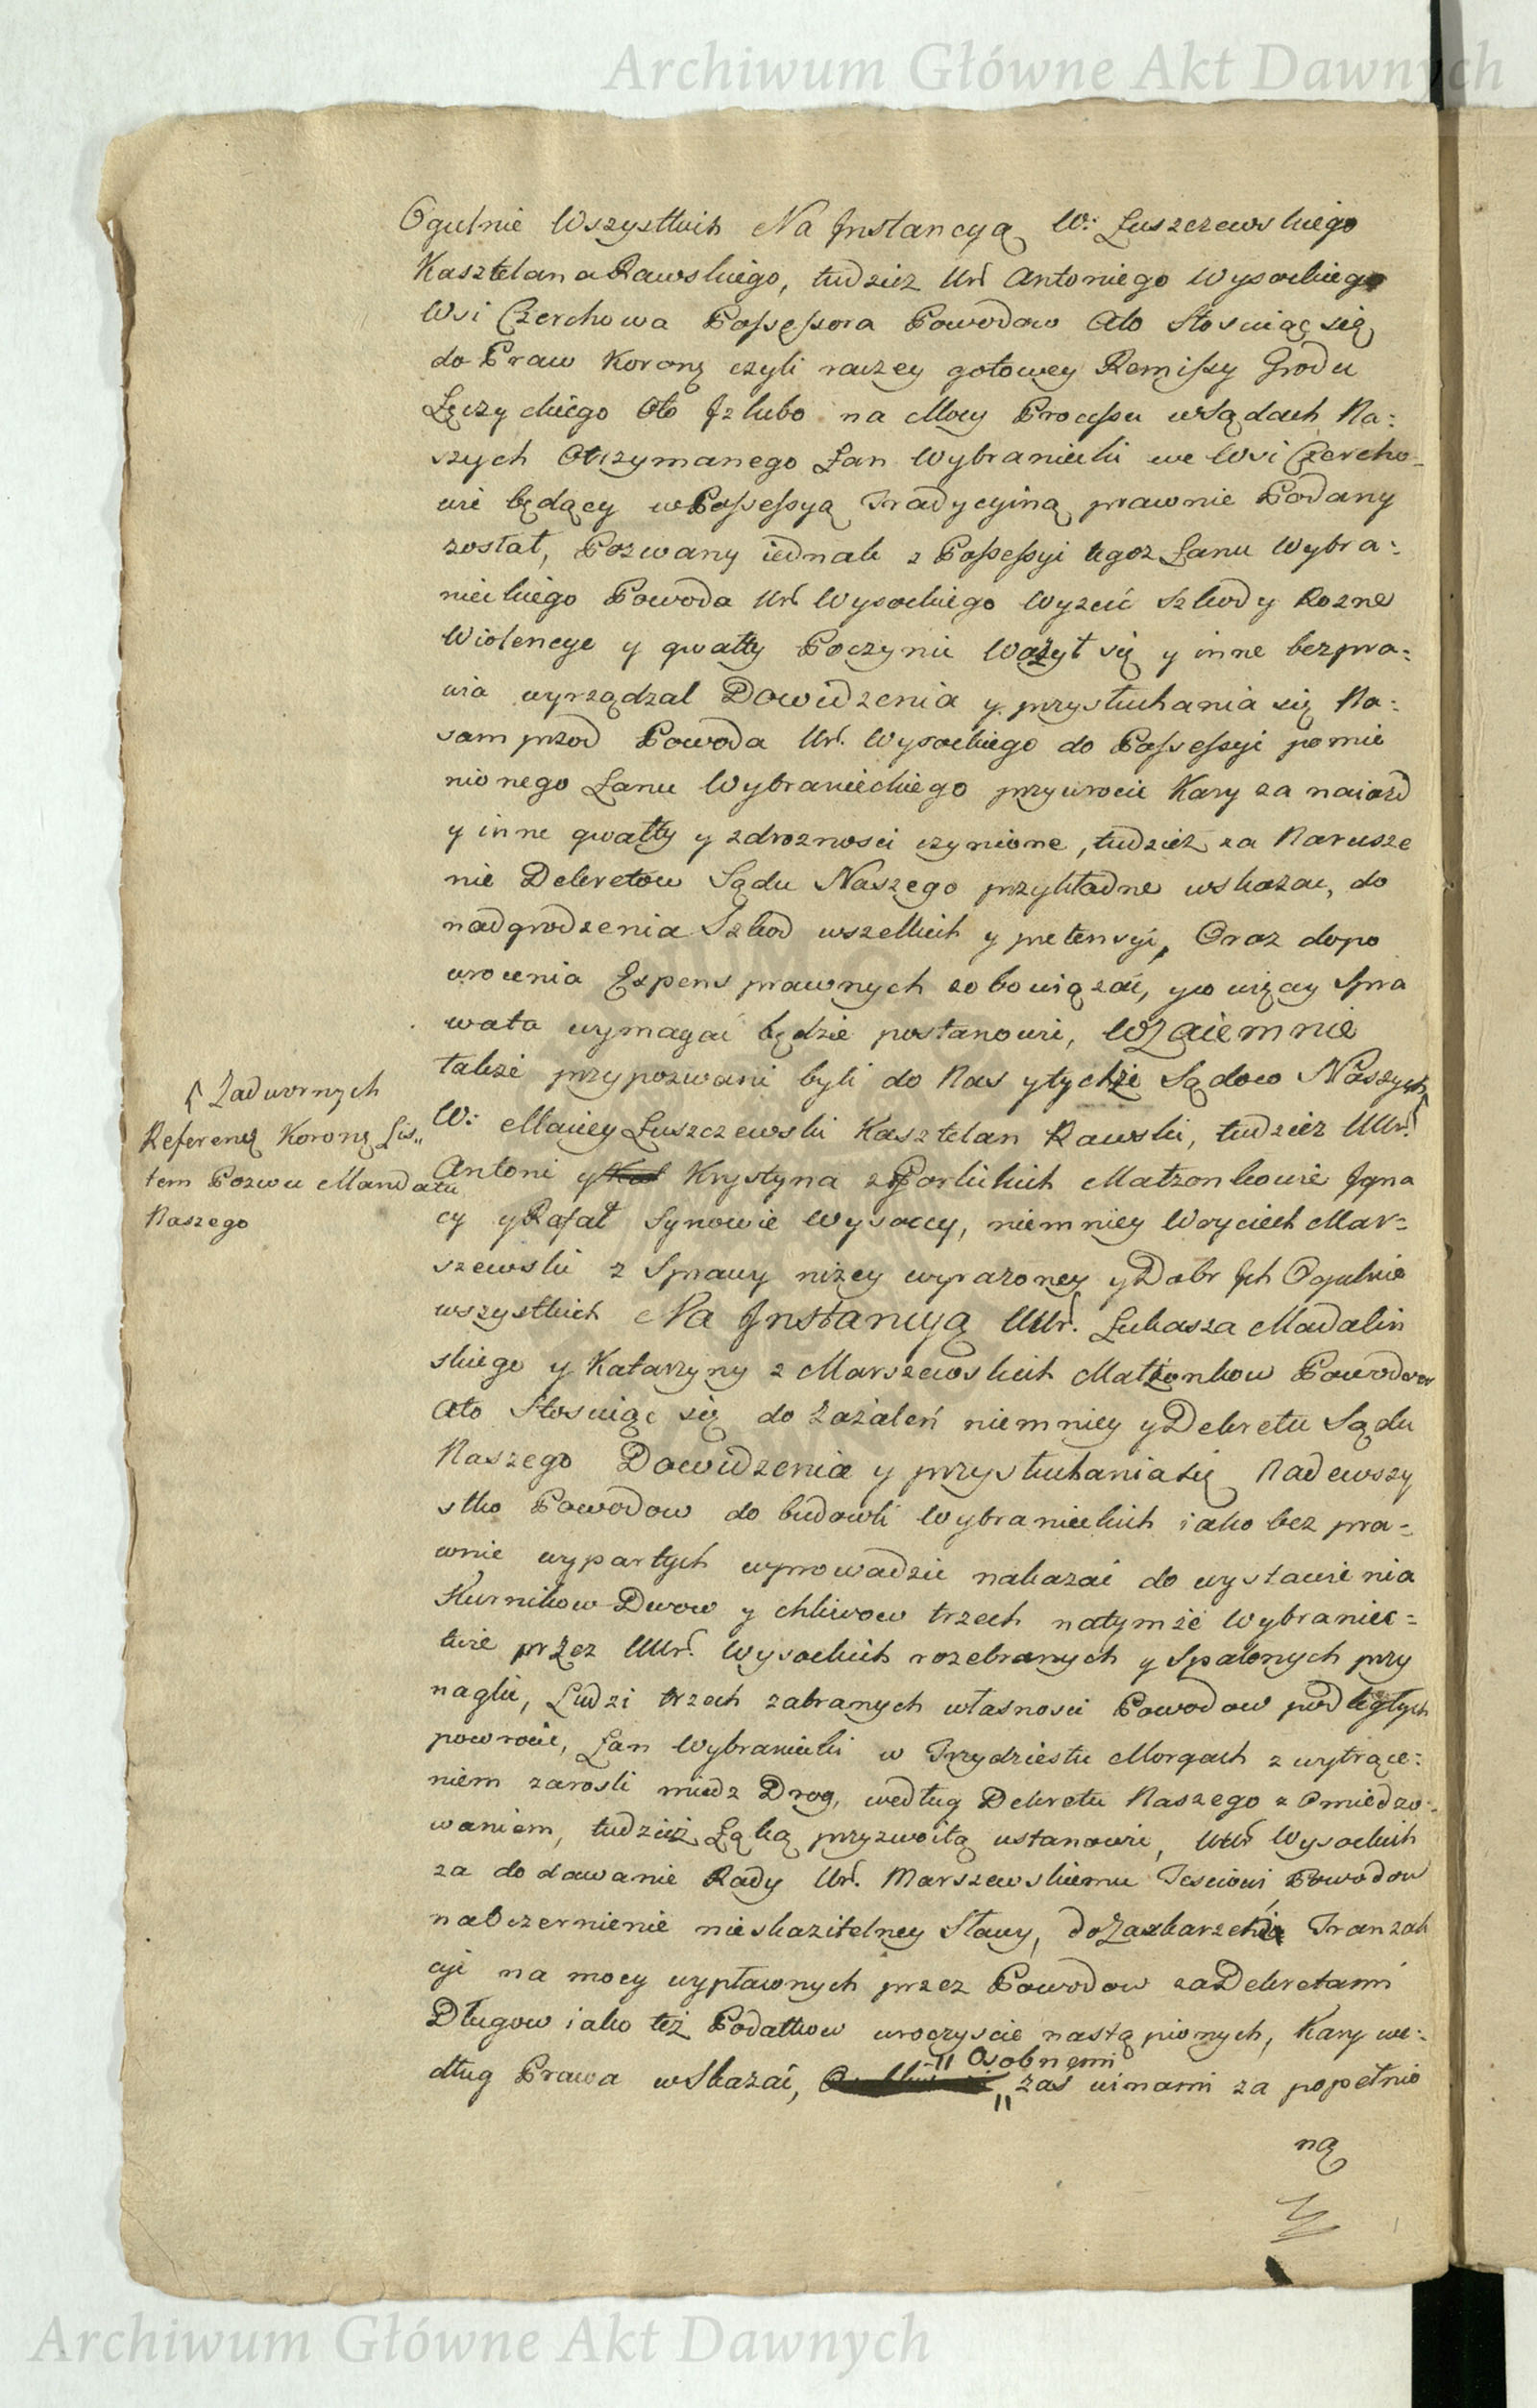 Archiwum Główne Akt Dawnych
Ogulnie Wszystkich Na Jnstancyą W: Łuszczewskiego
Kasztelana Rawskiego, tudziez Ur̃ Antoniego Wysockiego
Wsi Czerchowa Possessora Powodow Ato Stosuiąc się
do Praw Koronẹ czyli raczey gotowey Remissy Grodu
Łęczyckiego Ato Jz lubo na Mocy Processu wSądach Na:
szych Otrzymanego Łan Wybraniecki we Wsi Czercho-
wie będący wPossessyą Tradycyiną prawnie Podany
został, Pozwany iednak z Possessyi tegoz Łanu Wybra:
nieckiego Powoda Ur̃ Wysockiego Wyzuć Szkody Rozne
Wiolencye y gwałty Poczynić Ważył się y inne bezpra:
wia wyrządzał Dowidzenia y przysłuchania się Na:
samprzod Powoda Ur̃. Wysockiego do Possessyi pomie
nionego Łanu Wybranieckiego przywrocić Kary za naiazd
y inne gwałty y zdroznosci czynione, tudziez za Narusze
nie Dekretow Sądu Naszego przykładne wskazac, do
nadgrodzenia Szkod wszelkich y pretensyi, Oraz dopo
wrocenia Expens prawnych zobowiązać, yco więcey Spra
wata wymagać będzie postanowić, Wzaiemnie
także przypozwani byli do Nas ytychże Sądow Naszych
↑ Zadwornych
Referenẹ Koronẹ Lis„
tem Pozwu Mandatu
Naszego
W: Maciey Łuszczewski Kasztelan Rawski, tudziez UUr̃.
Antoni y Krystyna z Gorlickich Małzonkowie Jgna
cy yRafał Synowie Wysoccy, niemniey Woyciech Mar=
szewski z Sprawy nizey wyrazoney yDobr Jch Ogulnie
wszystkich Na Jnstancyą UUr̃. Łukasza Madalin
skiego y Katarzyny z Marszewskich Małżonkow Powodow
Ato Stosuiąc się do Zażaleń niemniey yDekretu Sądu
Naszego Dowidzenia y przysłuchania się Nadewszy
stko Powodow do budowli Wybranieckich iako bez pra-
wnie wypartych wprowadzić nakazać do wystawienia
Kurnikow Dwow y chliwow trzech natymże Wybraniec=
twie przez UUr̃. Wysockich rozebranych y Spalonych przy
naglić, Ludzi trzech zabranych własnosci Powodow podległych
powrocić, Łan Wybraniecki w Trzydziestu Morgach z wytrące:
niem zarosli miedz Drog, według Dekretu Naszego z Omiedzo:
waniem, tudzież Łąką przyzwoitą ustanowić, UUr̃ Wysockich
za dodawanie Rady Ur̃. Marszewskiemu Tesciowi Powodow
naOczernienie nieskazitelney Sławy, do Zaskarzenia Tranzak
cyi na mocy wypłaconych przez Powodow zaDekretami
Długow iako też Podatkow uroczyscie nastąpionych, Kary we:
dług Prawa wSkazać, „Osobnemi„ zaś winami za popełnio
ną
Archiwum Główne Akt Dawnych